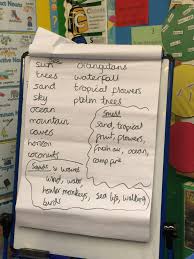 sun orangutans
trees waterfall
sand tropical flowers
sky palm trees
ocean
mountain
caves
horizon
coconuts
Smell
sand, tropical
fruit, flowers,
fresh air, ocean,
camp fire
Sounds
waves
wind, water
howler monkeys, sea life, walking
birds